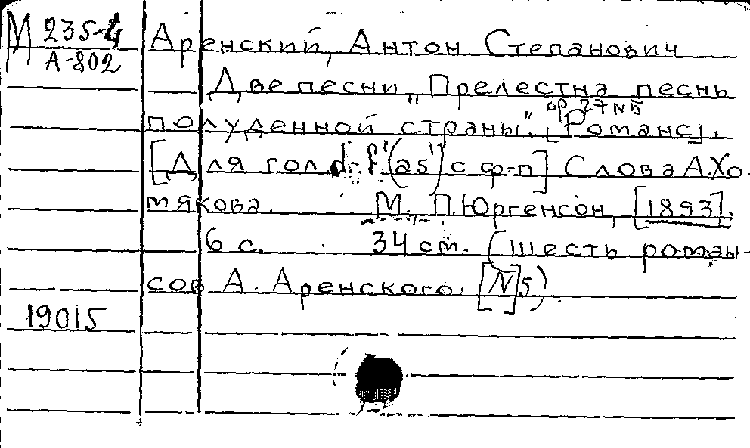 М 235-4
А-802
Аренский, Антон Степанович
Две песни „Прелестна песнь
ор. 27 №5
полуденной страны." [Романс].
[Для гол. (as") с ф-п] Слова А. Хо-
мякова. М., П. Юргенсон, [1893].
6 с. 34 см. (Шесть роман-
сов А. Аренского. [N 5)
19015